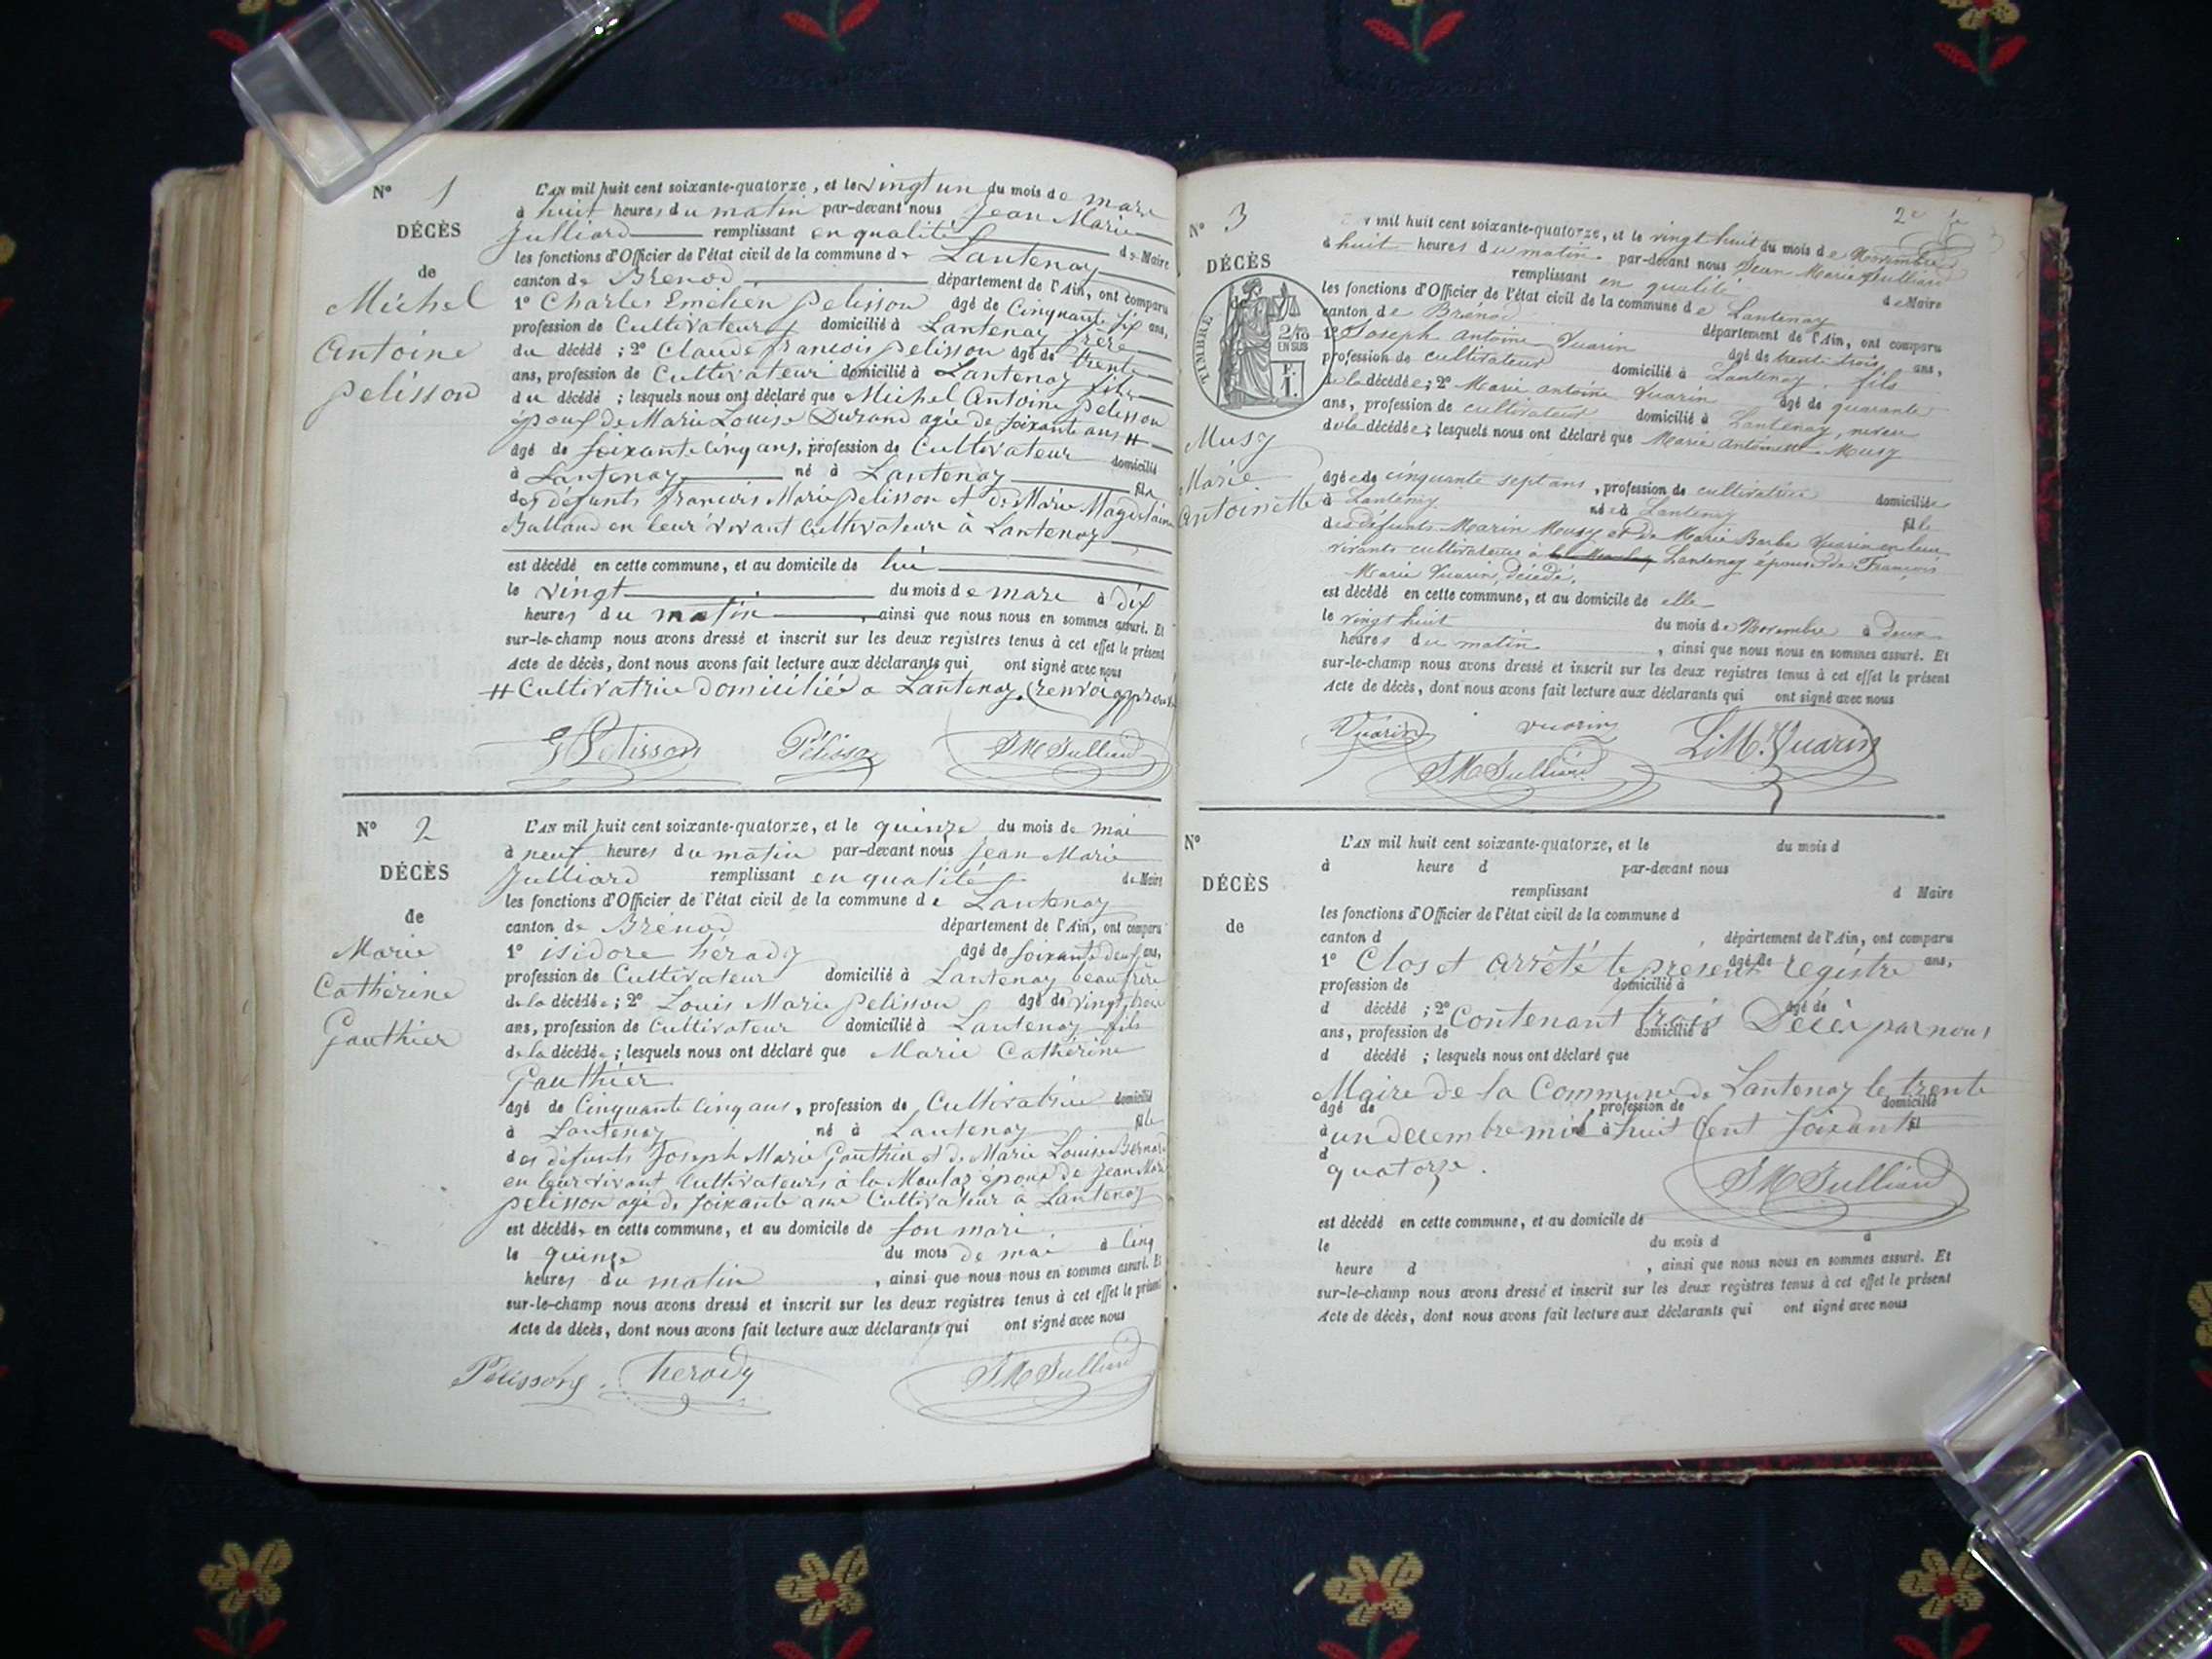 N° 1
DÉCÈS
de
Michel
Antoine
pelisson
L'AN mil huit cent soixante-quatorze, et le vingt un du mois de mars
à huit heures du matin par-devant nous Jean Marie
Julliard remplissant en qualité de Maire
les fonctions d'Officier de l'état civil de la commune de Lantenay
canton de Brenod département de l'Ain, ont comparu
1° Charles pelisson âgé de Cinquante six ans,
profession de Cultivateur domicilié à Lantenay frère
du décédé ; 2° Claude françois pelisson âgé de trente
ans, profession de Cultivateur domicilié à Lantenay fils
du décédé ; lesquels nous ont déclaré que Michel Antoine pelisson
époux de Marie Louise Durand agée de soixante ans #
âgé de soixante cinq ans, profession de Cultivateur domicilié
à Lantenay né à Lantenay fils
des défunts françois Marie pelisson et de Marie Magdelaine
Balland en leur vivant Cultivateurs à Lantenay
est décédé en cette commune, et au domicile de lui
le vingt du mois de mars à dix
heures du matin, ainsi que nous nous en sommes assuré. Et
sur-le-champ nous avons dressé et inscrit sur les deux registres tenus à cet effet le présent
Acte de décès, dont nous avons fait lecture aux déclarants qui ont signé avec nous
# Cultivatrice domiciliée a Lantenay (renvoi approuvé
Pelisson Pélisson JM Julliard
N° 2
DÉCÈS
de
Marie
Cathérine
Gauthier
L'AN mil huit cent soixante-quatorze, et le quinze du mois de mai
à neuf heures du matin par-devant nous Jean Marie
Julliard remplissant en qualité de Maire
les fonctions d'Officier de l'état civil de la commune de Lantenay
canton de Brénod département de l'Ain, ont comparu
1° isidore hérody âgé de soixante deux ans,
profession de Cultivateur domicilié à Lantenay beau frère
de la décédée ; 2° Louis Marie pelisson âgé de vingt trois
ans, profession de Cultivateur domicilié à Lantenay fils
de la décédée ; lesquels nous ont déclaré que Marie Cathérine
Gauthier
âgé de Cinquante Cinq ans, profession de Cultivatrice domicilié
à Lantenay né à Lantenay fille
des défunts Joseph Marie Gauthier et de Marie Louise Bernard
en leur vivant Cultivateurs à la Moulaz épouse de Jean Marie
pelisson agé de soixante ans Cultivateur à Lantenay
est décédée en cette commune, et au domicile de son mari
le quinze du mois de mai à Cinq
heures du matin, ainsi que nous nous en sommes assuré. Et
sur-le-champ nous avons dressé et inscrit sur les deux registres tenus à cet effet le présent
Acte de décès, dont nous avons fait lecture aux déclarants qui ont signé avec nous
Pelisson herody JM Julliard
2e
N° 3
DÉCÈS
TIMBRE
2/10
EN SUS
F.
1.
Musy
Marie
Antoinette
mil huit cent soixante-quatorze, et le vingt huit du mois de Novembre
à huit heures du matin par-devant nous Jean Marie Julliard
remplissant en qualité de Maire
les fonctions d'Officier de l'état civil de la commune de Lantenay
canton de Brénod département de l'Ain, ont comparu
1° Joseph Antoine Vuarin âgé de trente trois ans,
profession de cultivateur domicilié à Lantenay, fils
de la décédée ; 2° Marie antoine Vuarin âgé de quarante
ans, profession de cultivateur domicilié à Lantenay, neveu
de la décédée ; lesquels nous ont déclaré que Marie Antoinette Musy
âgée de cinquante sept ans, profession de cultivatrice domiciliée
à Lantenay née à Lantenay fille
des défunts Marin Musy et de Marie Barbe Vuarin en leur
vivants cultivateurs à Lantenay épouse de François
Marie Vuarin, décédé.
est décédé en cette commune, et au domicile de elle
le vingt huit du mois de Novembre à deux
heures du matin, ainsi que nous nous en sommes assuré. Et
sur-le-champ nous avons dressé et inscrit sur les deux registres tenus à cet effet le présent
Acte de décès, dont nous avons fait lecture aux déclarants qui ont signé avec nous
Vuarin vuarin L.M. Vuarin
JM Julliard
N°
DÉCÈS
de
L'AN mil huit cent soixante-quatorze, et le du mois d
à heure d par-devant nous
remplissant d Maire
les fonctions d'Officier de l'état civil de la commune d
canton d , département de l'Ain, ont comparu
1° Clos et arrêté le présent régistre âgé de ans,
profession de domicilié à
d décédé ; 2° Contenant trois Décès par nous âgé de
ans, profession de domicilié à
d décédé ; lesquels nous ont déclaré que
Maire de la Commune de Lantenay le trente
âgé de profession de domicilié
à un decembre mil huit Cent soixante né à fil
d quatorze.
JM Julliard
est décédé en cette commune, et au domicile de
le du mois d à
heure d , ainsi que nous nous en sommes assuré. Et
sur-le-champ nous avons dressé et inscrit sur les deux registres tenus à cet effet le présent
Acte de décès, dont nous avons fait lecture aux déclarants qui ont signé avec nous